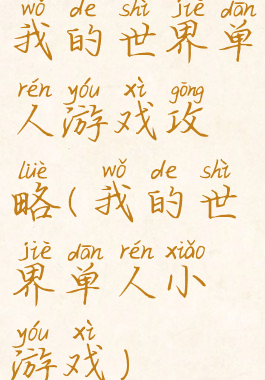 wǒ de shì jiè dān
我的世界单
rén yóu xì gōng
人游戏攻
lüè wǒ de shì
略(我的世
jiè dān rén xiǎo
界单人小
yóu xì
游戏)